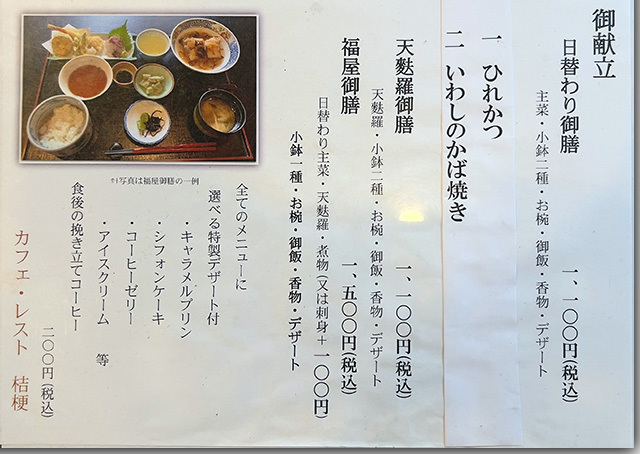 御献立
日替わり御膳 一、一〇〇円(税込)
主菜・小鉢二種・お椀・御飯・香物・デザート
一 ひれかつ
二 いわしのかば焼き
天麩羅御膳 一、一〇〇円(税込)
天麩羅・小鉢二種・お椀・御飯・香物・デザート
福屋御膳 一、五〇〇円(税込)
日替わり主菜・天麩羅・煮物(又は刺身+一〇〇円)
小鉢一種・お椀・御飯・香物・デザート
※写真は福屋御膳の一例
全てのメニューに
選べる特製デザート付
・キャラメルプリン
・シフォンケーキ
・コーヒーゼリー
・アイスクリーム 等
食後の挽き立てコーヒー
二〇〇円(税込)
カフェ・レスト 桔梗